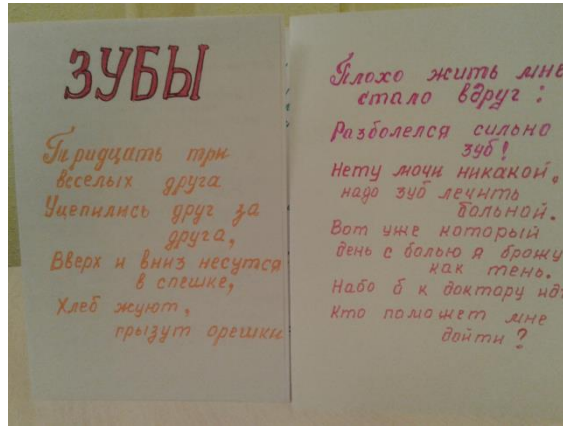 ЗУБЫ
Тридцать три
веселых друга
Уцепились друг за
друга,
Вверх и вниз несутся
в спешке,
Хлеб жуют,
грызут орешки
Плохо жить мне
стало вдруг:
Разболелся сильно
зуб!
Нету мочи никакой,
надо зуб лечить
больной.
Вот уже который
день с болью я брожу
как тень.
Надо б к доктору
Кто поможет мне
дойти?